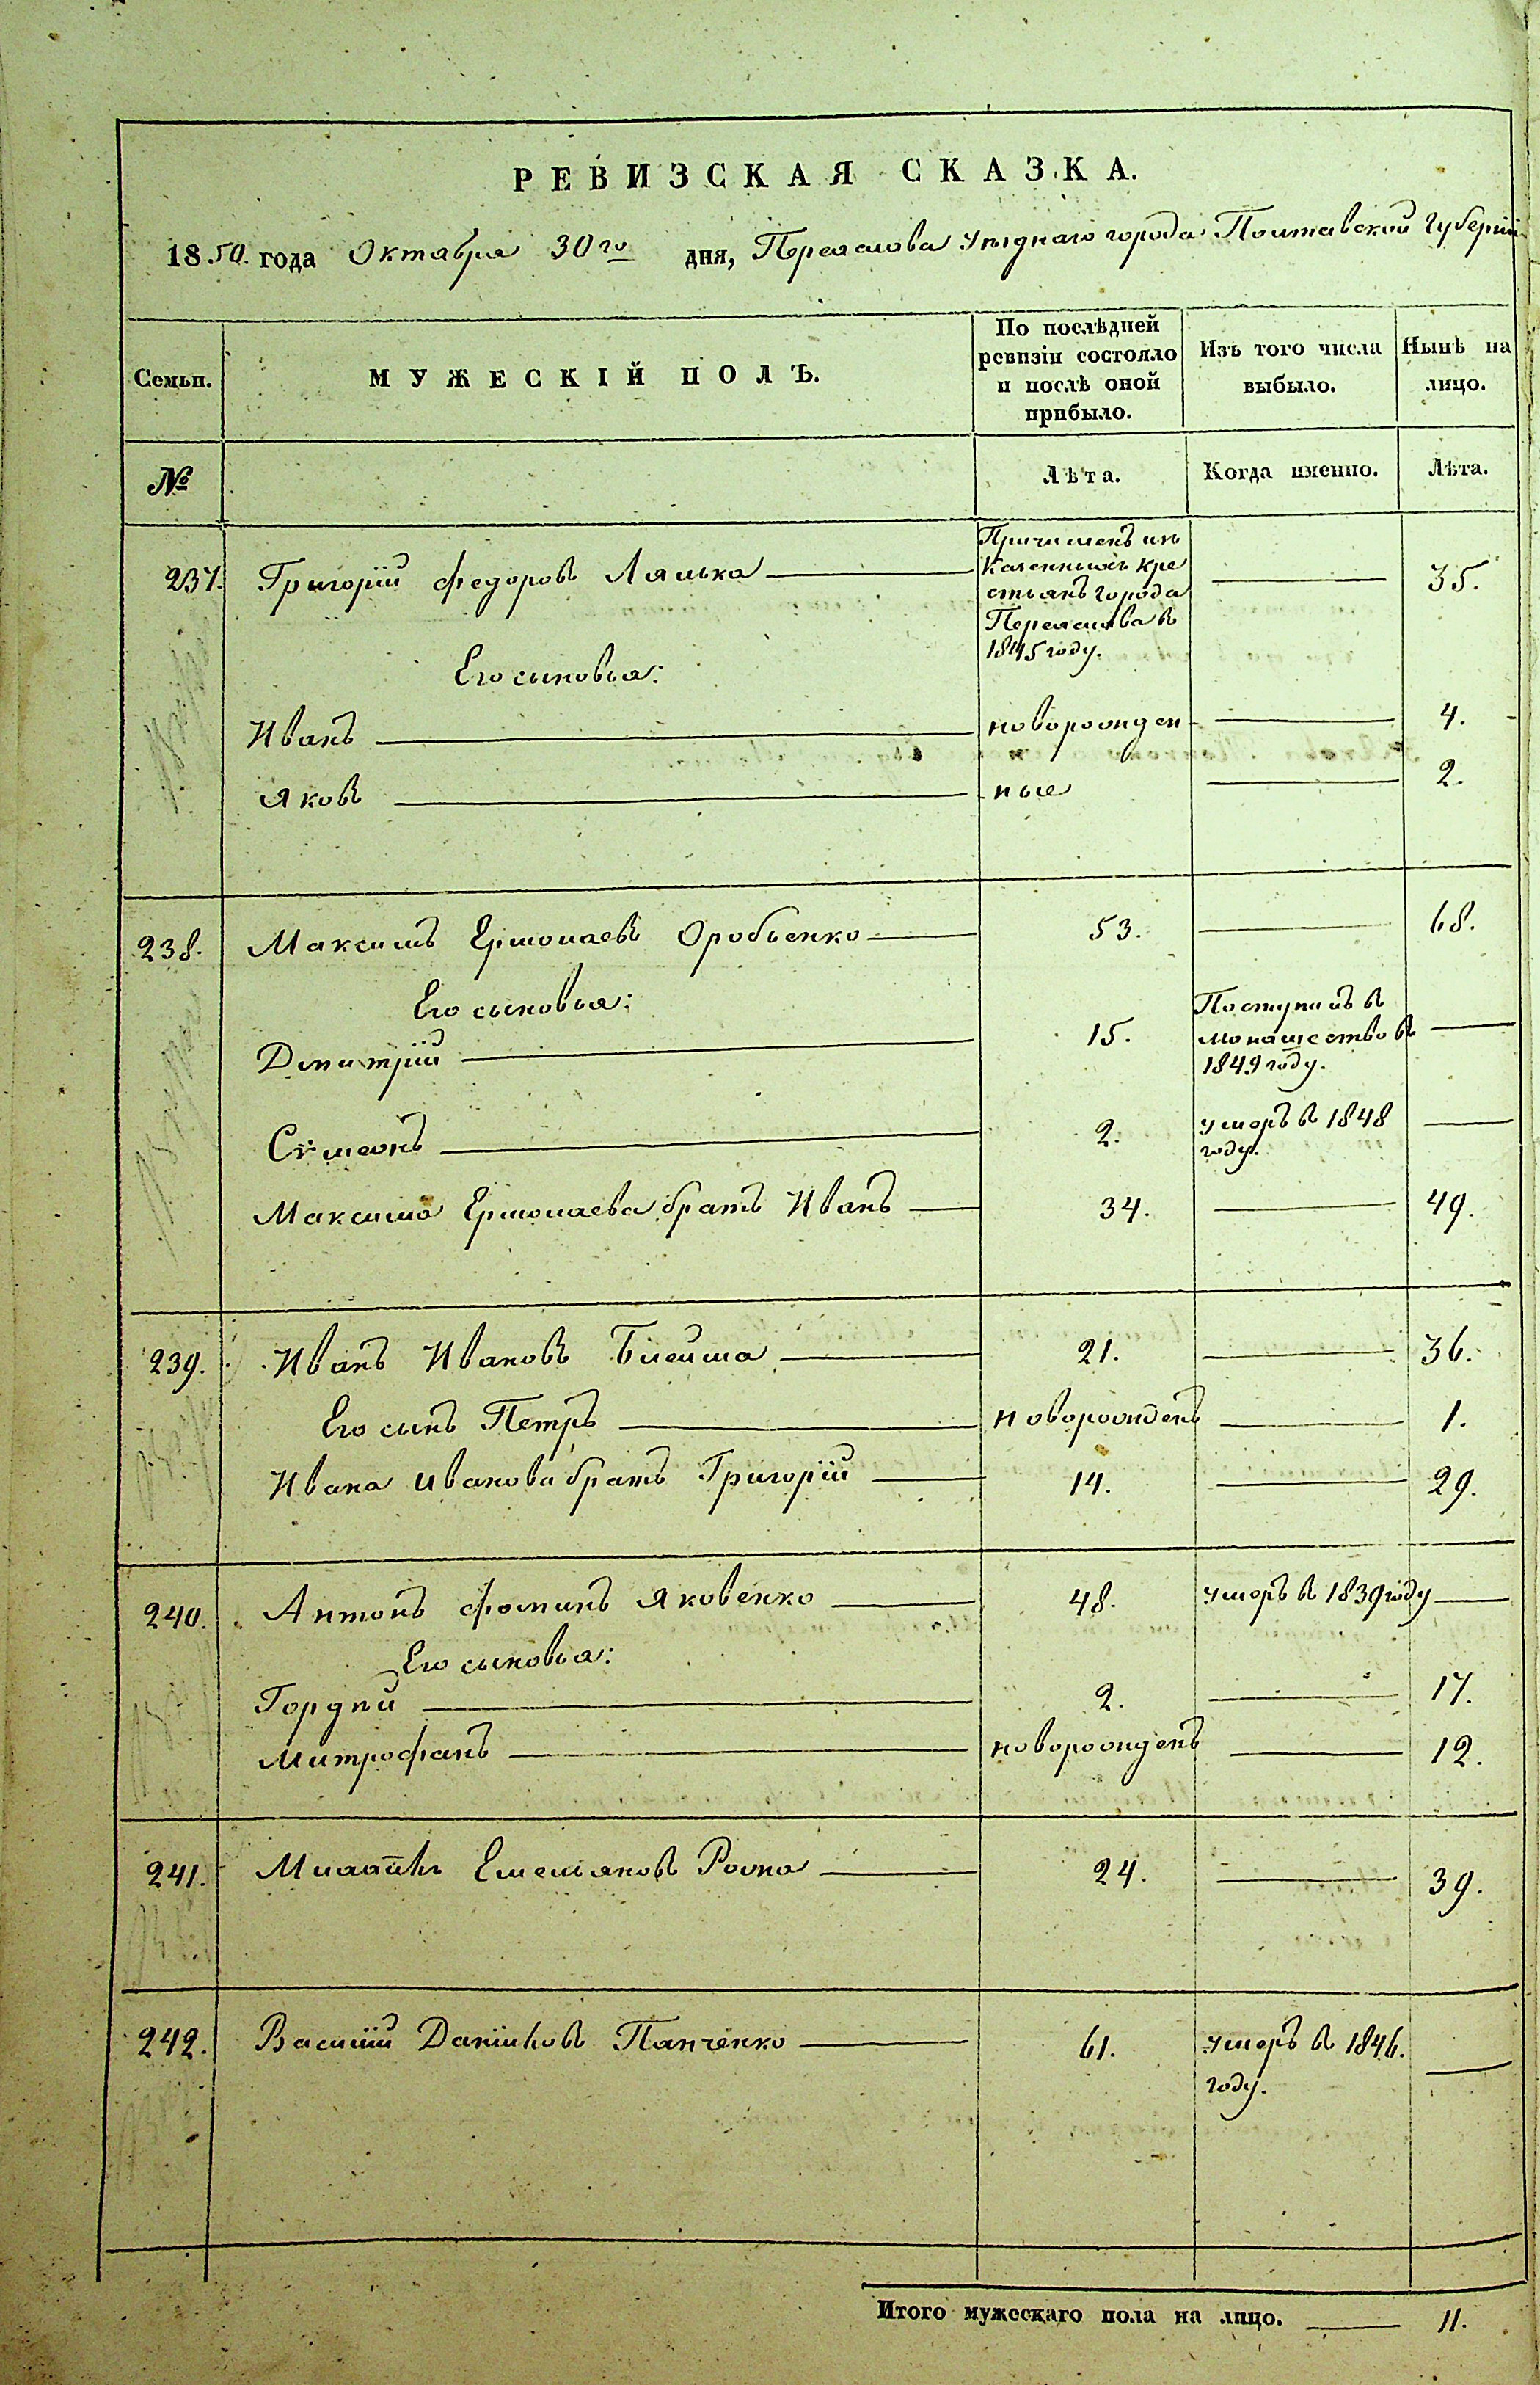 РЕВИЗСКАЯ СКАЗКА.
1850. года Октября 30го дня, Переяслова Уѣзднаго города Полтавской Губерніи
Семьи.
МУЖЕСКІЙ ПОЛЪ.
По послѣдней
ревизіи состояло
и послѣ оной
прибыло.
Изъ того числа
выбыло.
Нынѣ на
лицо.
№
Лѣта.
Когда именно.
Лѣта.
237. Григорій Федоровъ Лялька
Причисленъ изъ
Казенныхъ Кре
стьянъ города
Переяслова въ
1845 году.
35.
Его сыновья:
Иванъ новорожден 4.
Яковъ ные 2.
238. Максимъ Ермолаевъ Оробьенко 53. 68.
Его сыновья:
Дмитрій 15.
Поступилъ въ
монашество въ
1849 году.
Сѵмеонъ 2.
Умеръ въ 1848
году.
Максима Ермолаева братъ Иванъ 34. 49.
239. Иванъ Ивановъ 21. 36.
Его сынъ Петръ новорожденъ 1.
Ивана Иванова братъ Григорій 14. 29.
240. Антонъ Фоминъ Яковенко 48. Умеръ въ 1839 году
Его сыновья:
Гордѣй 2. 17.
Митрофанъ новорожденъ 12.
241. Емельяновъ 24. 39.
242. Василій Даніиловъ Панченко 61.
Умеръ въ 1846.
году.
Итого мужескаго пола на лицо. 11.